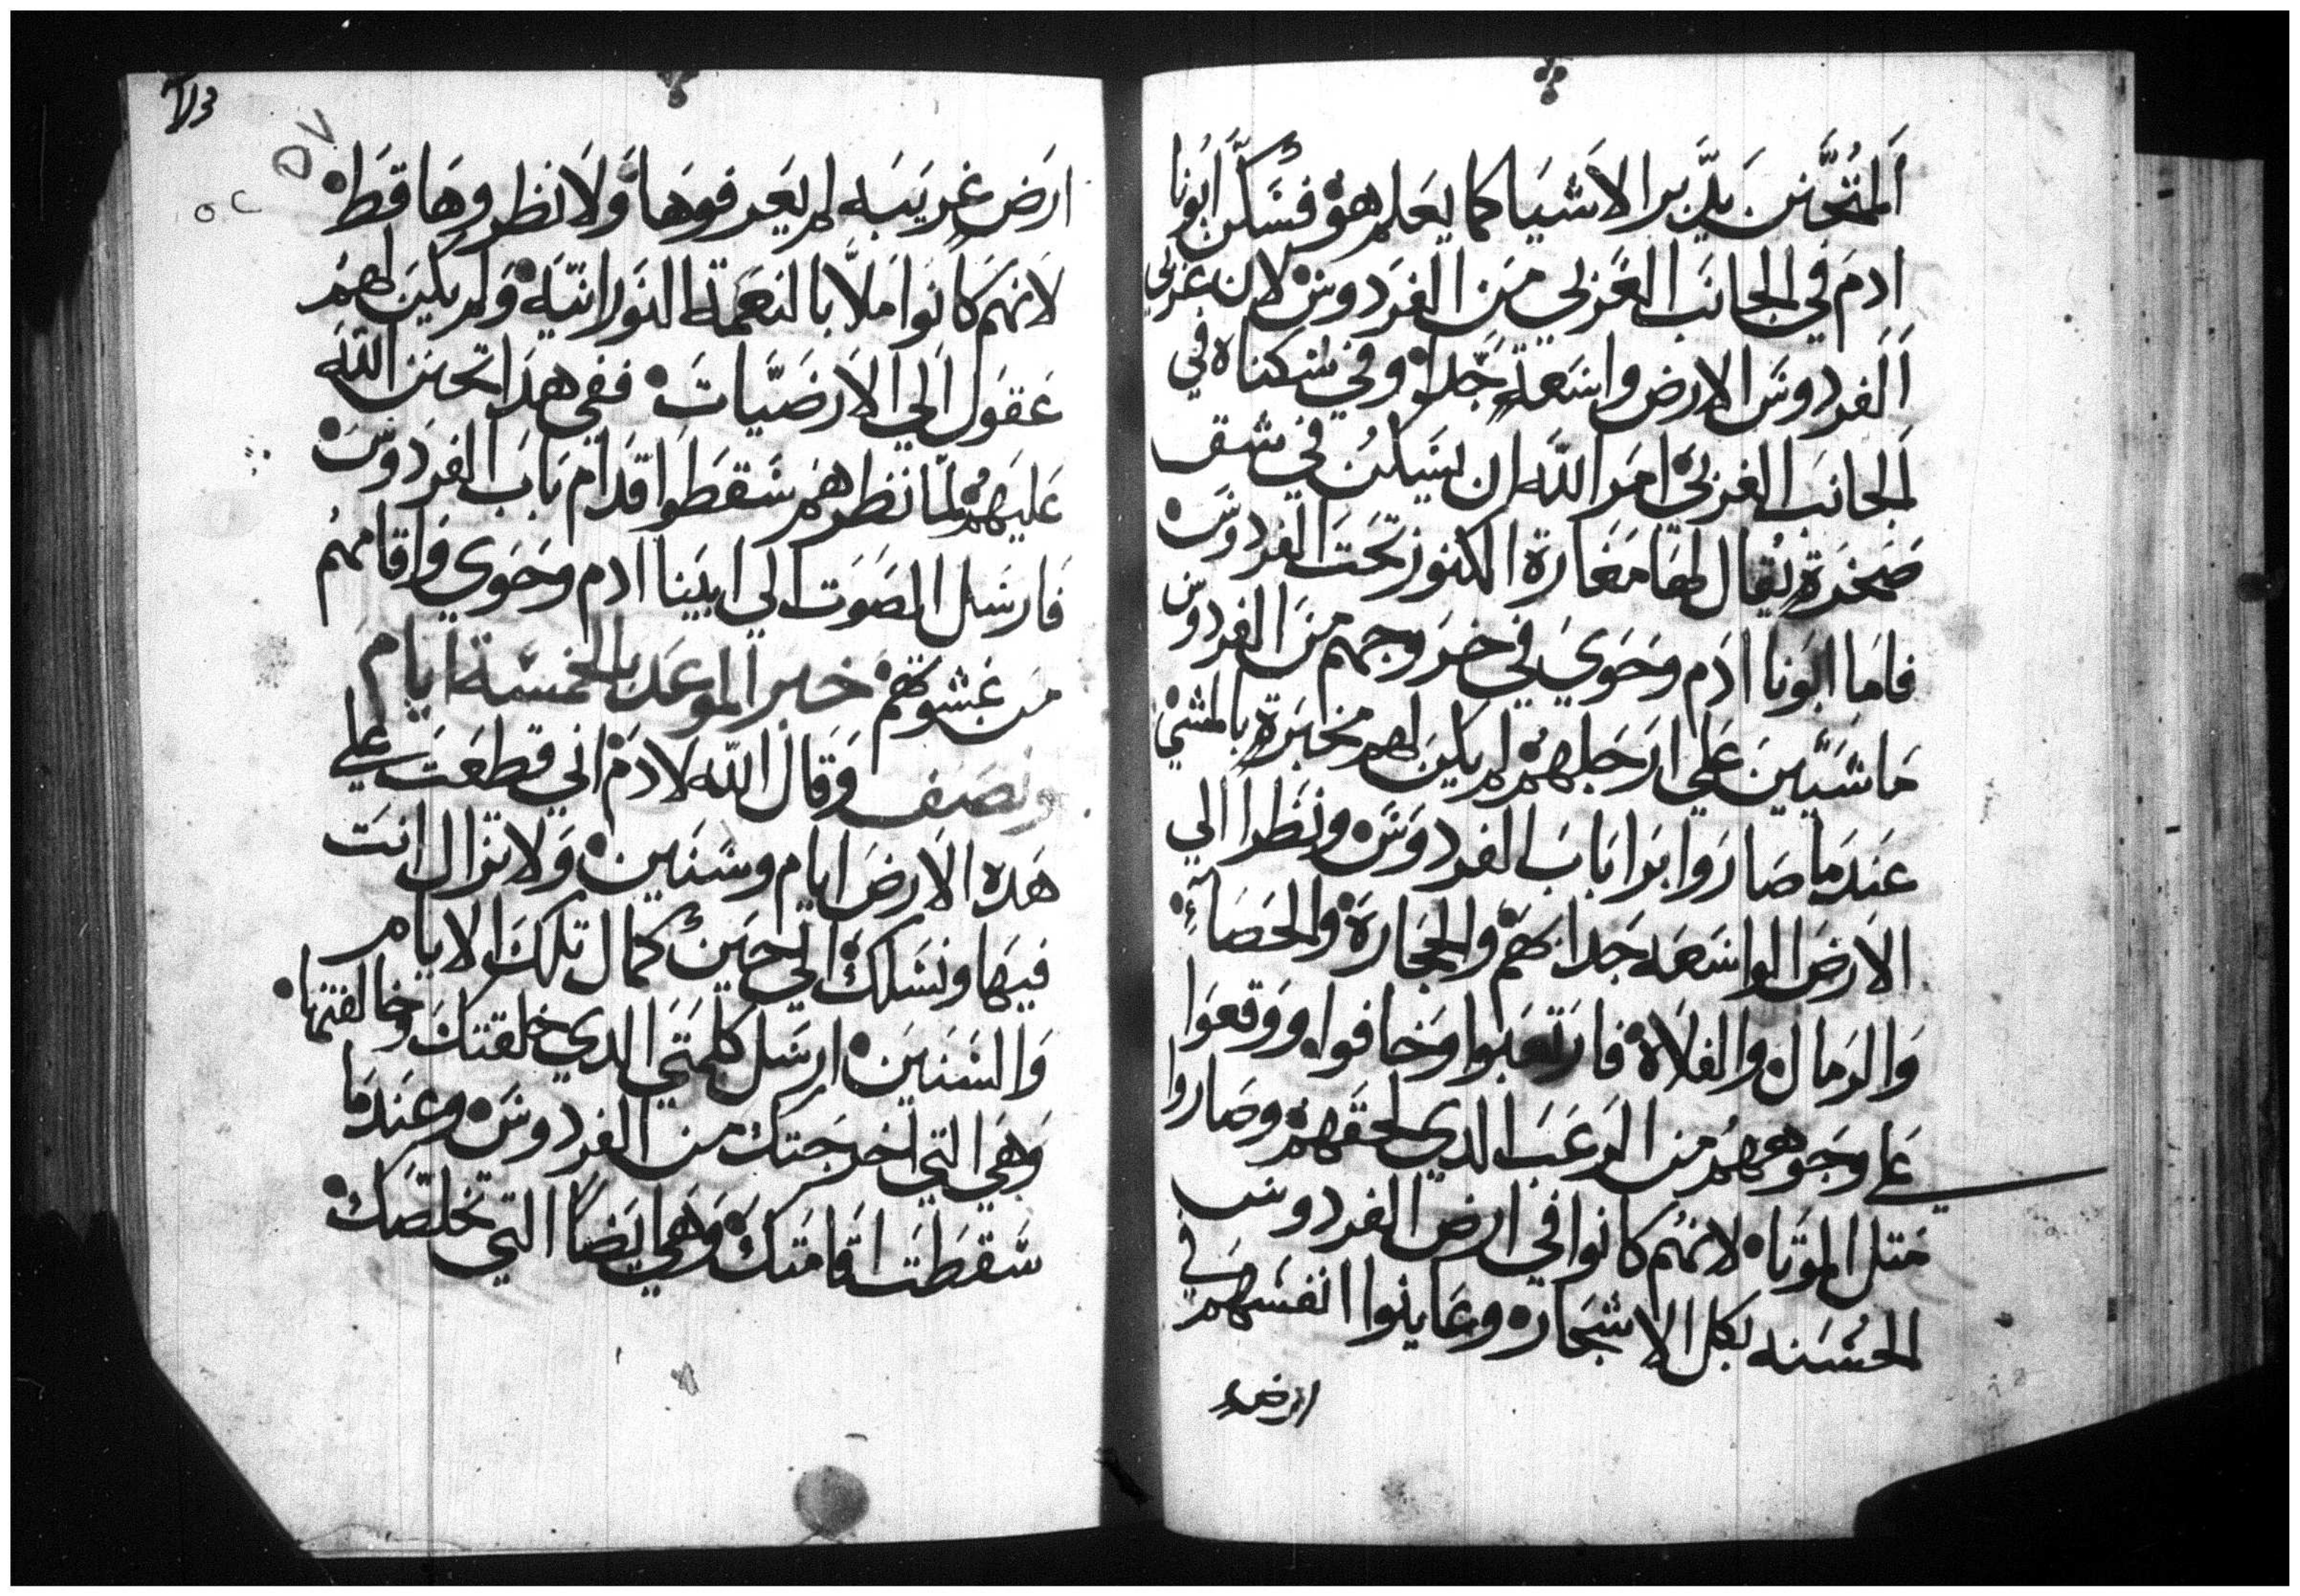 المتحنن يدبر الاشيا كما يعلم هو فسكن ابونا
ادم في الجانب الغربي من الفردوس لان غربي
الفردوس الارض واسعة جدا وفي سكناه في
الجانب الغربي امر الله ان يسكن في شق
صخرة يقال لها مغارة الكنوز تحت الفردوس
فاما ابونا ادم وحوي في خروجهم من الفردوس
ماشيين علي ارجلهم لم يكن لهم مخبرة بالمشي
عندما صاروا برا باب الفردوس ونظرا الي
الارض الواسعه جدا بهم والحجارة والحصاء
والرمال والفلاه فارتعبوا وخافوا ووقعوا
علي وجوههم من الرعب الدي لحقهم وصاروا
متل الموتا لانهم كانوا في ارض الفردوس
الحسنه بكل الاشجار وعاينوا انفسهم في
ارض
٥٧
٥٢
ارض غريبه لم يعرفوها ولا نظروها قط
لانهم كانوا ملا بالنعمة النورانيه ولم يكن لهم
عقول الي الارضيات ففي هدا تحنن الله
عليهم لما نظرهم سقطوا قدام باب الفردوس
فارسل الصوت الي ابينا ادم وحوي واقامهم
من غشوتهم خبر الموعد بالخمسة ايام
ونصف وقال الله لادم اني قطعت علي
هده الارض ايام وسنين ولا تزال انت
فيها ونسلك الي حين كمال تلك الايام
والسنين ارسل كلمتي الدي خلقتك وخالفتها
وهي التي اخرجتك من الفردوس وعندما
سقطت اقامتك وهي ايضا التي تخلصك